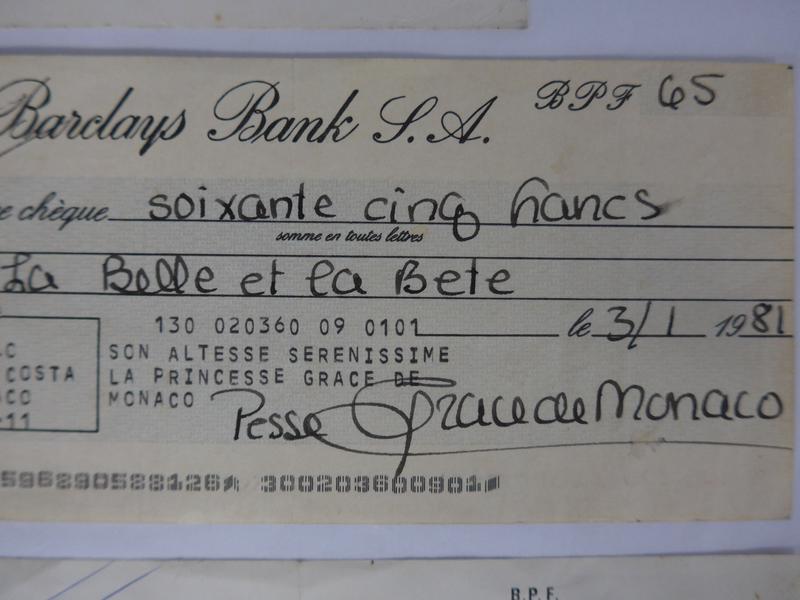 Barclays Bank S.A. BPF 65
e chèque soixante cinq francs
somme en toutes lettres
La Belle et la Bete
130 020360 09 0101 le 3/1 1981
SON ALTESSE SERENISSIME
LA PRINCESSE GRACE DE
MONACO
C
COSTA
CO
-11
Pesse Grace de Monaco
596290588126 300203600901
B.P.F.